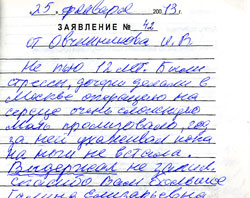 25. февраля 200 13 г.
ЗАЯВЛЕНИЕ № 42
от Овчинникова И. В
Не пью 12 лет. Были
стрессы, дочери делали в
Москве операцию на
сердце очень сложную
Мать парализовало, сам
за ней ухаживал пока
на ноги не встала.
Выдержал не запил.
Спасибо Вам большое
Галина Елизарьевна